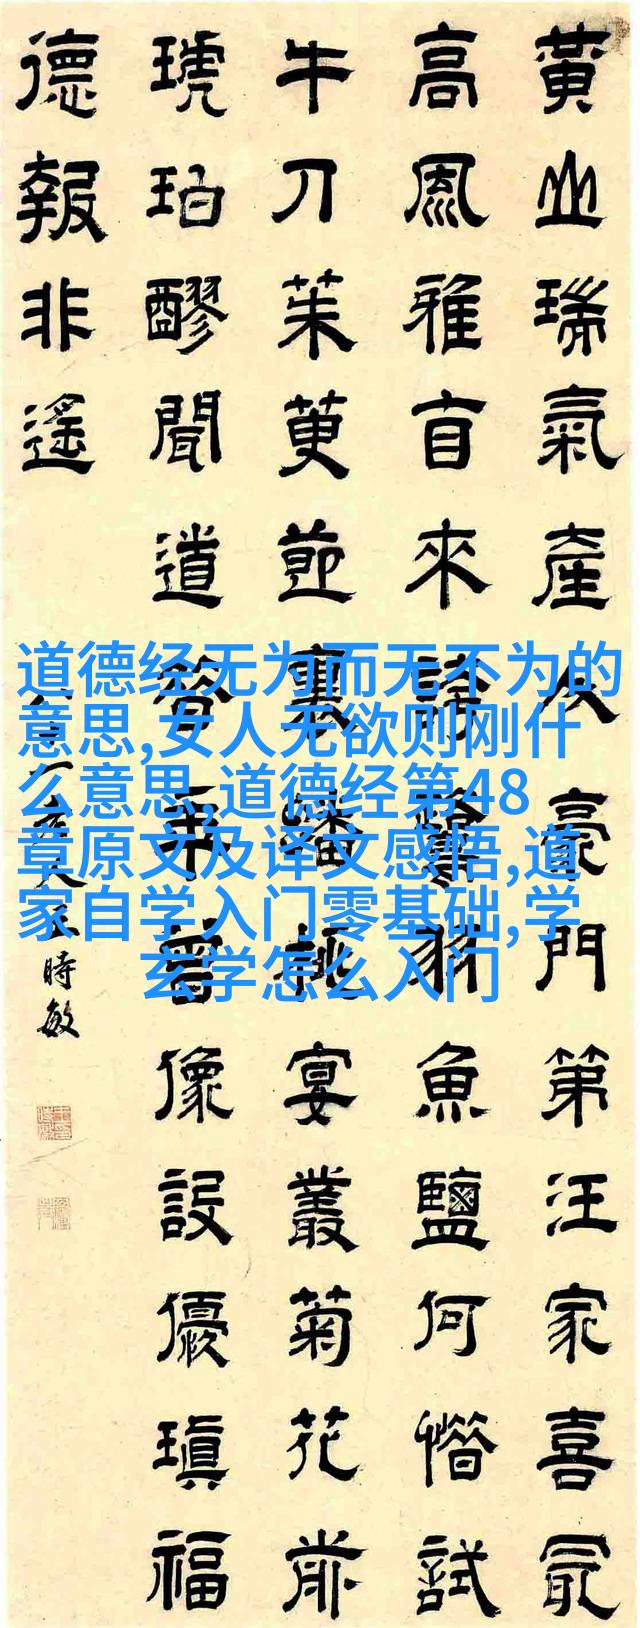 黃山瑞氣產人豪門第汪家喜最
高風雅來魚鹽何試
牛刀茱萸節裏蟠桃宴叢菊花前
琥珀醪聞道年曾像設優福
德報非遙
時敏
道德经无为而无不为的
意思,女人无欲则刚什
么意思,道德经第48
章原文及译文感悟,道
家自学入门零基础,学
玄学怎么入门